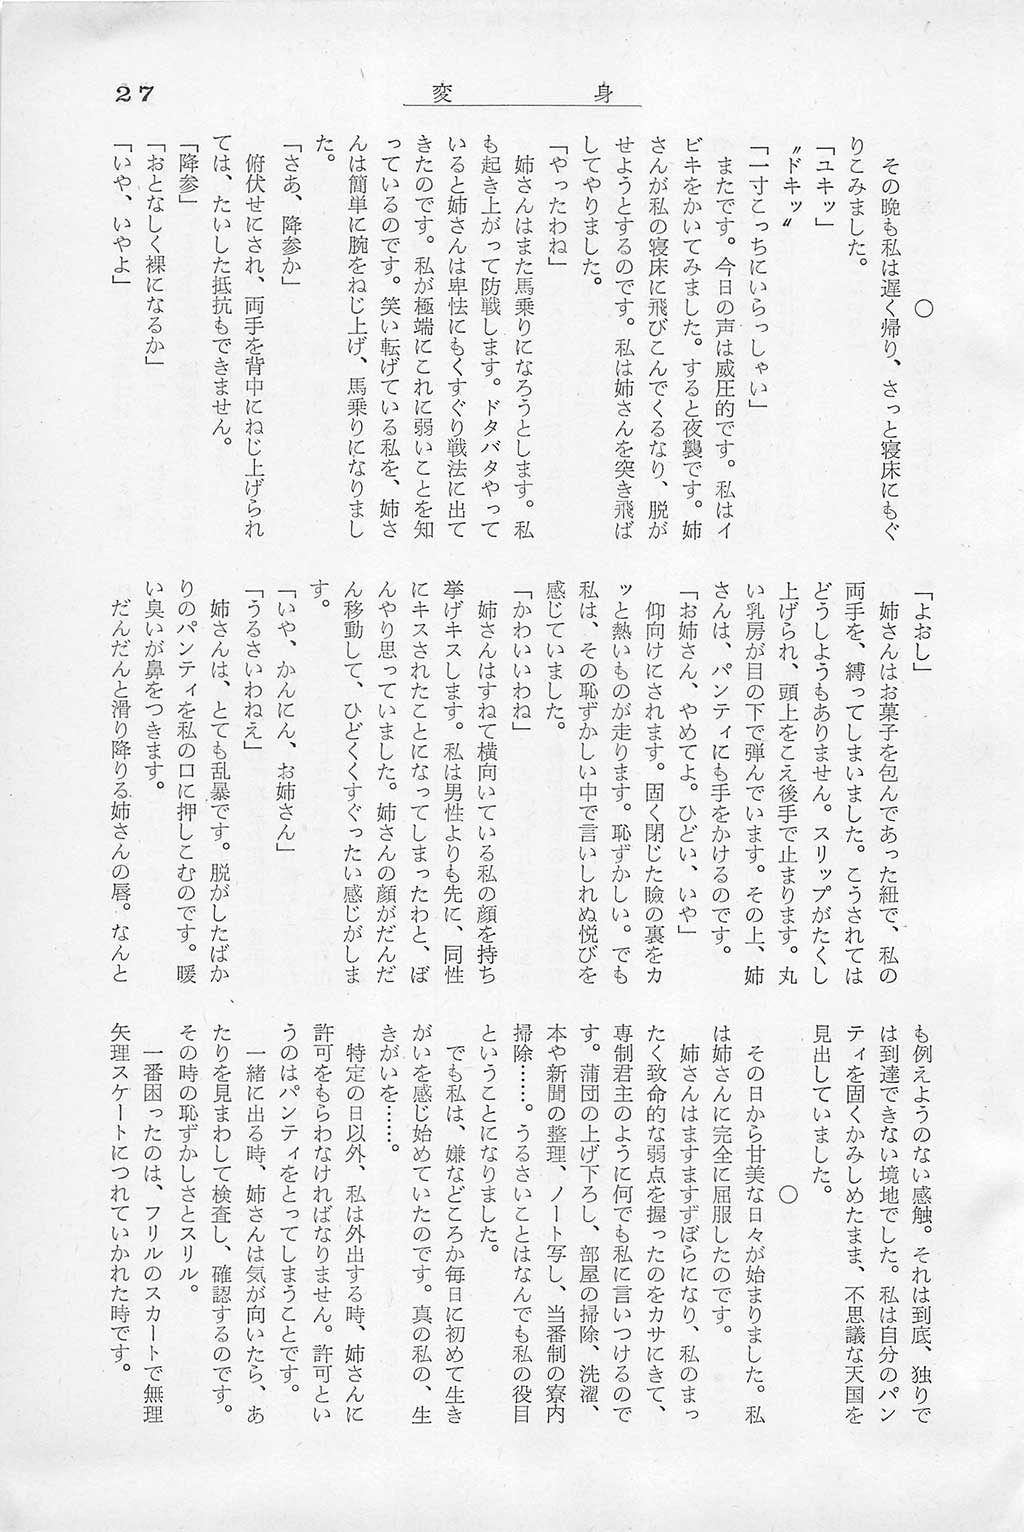 27
変身
○
その晩も私は遅く帰り、さっと寝床にもぐ
りこみました。
「ユキッ」
〝ドキッ〟
「一寸こっちにいらっしゃい」
またです。今日の声は威圧的です。私はイ
ビキをかいてみました。すると夜襲です。姉
さんが私の寝床に飛びこんでくるなり、脱が
せようとするのです。私は姉さんを突き飛ば
してやりました。
「やったわね」
姉さんはまた馬乗りになろうとします。私
も起き上がって防戦します。ドタバタやって
いると姉さんは卑怯にもくすぐり戦法に出て
きたのです。私が極端にこれに弱いことを知
っているのです。笑い転げている私を、姉さ
んは簡単に腕をねじ上げ、馬乗りになりまし
た。
「さあ、降参か」
俯伏せにされ、両手を背中にねじ上げられ
ては、たいした抵抗もできません。
「降参」
「おとなしく裸になるか」
「いや、いやよ」
「よおし」
姉さんはお菓子を包んであった紐で、私の
両手を、縛ってしまいました。こうされては
どうしようもありません。スリップがたくし
上げられ、頭上をこえ後手で止まります。丸
い乳房が目の下で弾んでいます。その上、姉
さんは、パンティにも手をかけるのです。
「お姉さん、やめてよ。ひどい、いや」
仰向けにされます。固く閉じた瞼の裏をカ
ッと熱いものが走ります。恥ずかしい。でも
私は、その恥ずかしい中で言いしれぬ悦びを
感じていました。
「かわいいわね」
姉さんはすねて横向いている私の顔を持ち
挙げキスします。私は男性よりも先に、同性
にキスされたことになってしまったわと、ぼ
んやり思っていました。姉さんの顔がだんだ
ん移動して、ひどくくすぐったい感じがしま
す。
「いや、かんにん、お姉さん」
「うるさいわねえ」
姉さんは、とても乱暴です。脱がしたばか
りのパンティを私の口に押しこむのです。暖
い臭いが鼻をつきます。
だんだんと滑り降りる姉さんの唇。なんと
も例えようのない感触。それは到底、独りで
は到達できない境地でした。私は自分のパン
ティを固くかみしめたまま、不思議な天国を
見出していました。
○
その日から甘美な日々が始まりました。私
は姉さんに完全に屈服したのです。
姉さんはますますずぼらになり、私のまっ
たく致命的な弱点を握ったのをカサにきて、
専制君主のように何でも私に言いつけるので
す。蒲団の上げ下ろし、部屋の掃除、洗濯、
本や新聞の整理、ノート写し、当番制の寮内
掃除……。うるさいことはなんでも私の役目
ということになりました。
でも私は、嫌などころか毎日に初めて生き
がいを感じ始めていたのです。真の私の、生
きがいを……。
特定の日以外、私は外出する時、姉さんに
許可をもらわなければなりません。許可とい
うのはパンティをとってしまうことです。
一緒に出る時、姉さんは気が向いたら、あ
たりを見まわして検査し、確認するのです。
その時の恥ずかしさとスリル。
一番困ったのは、フリルのスカートで無理
矢理スケートにつれていかれた時です。